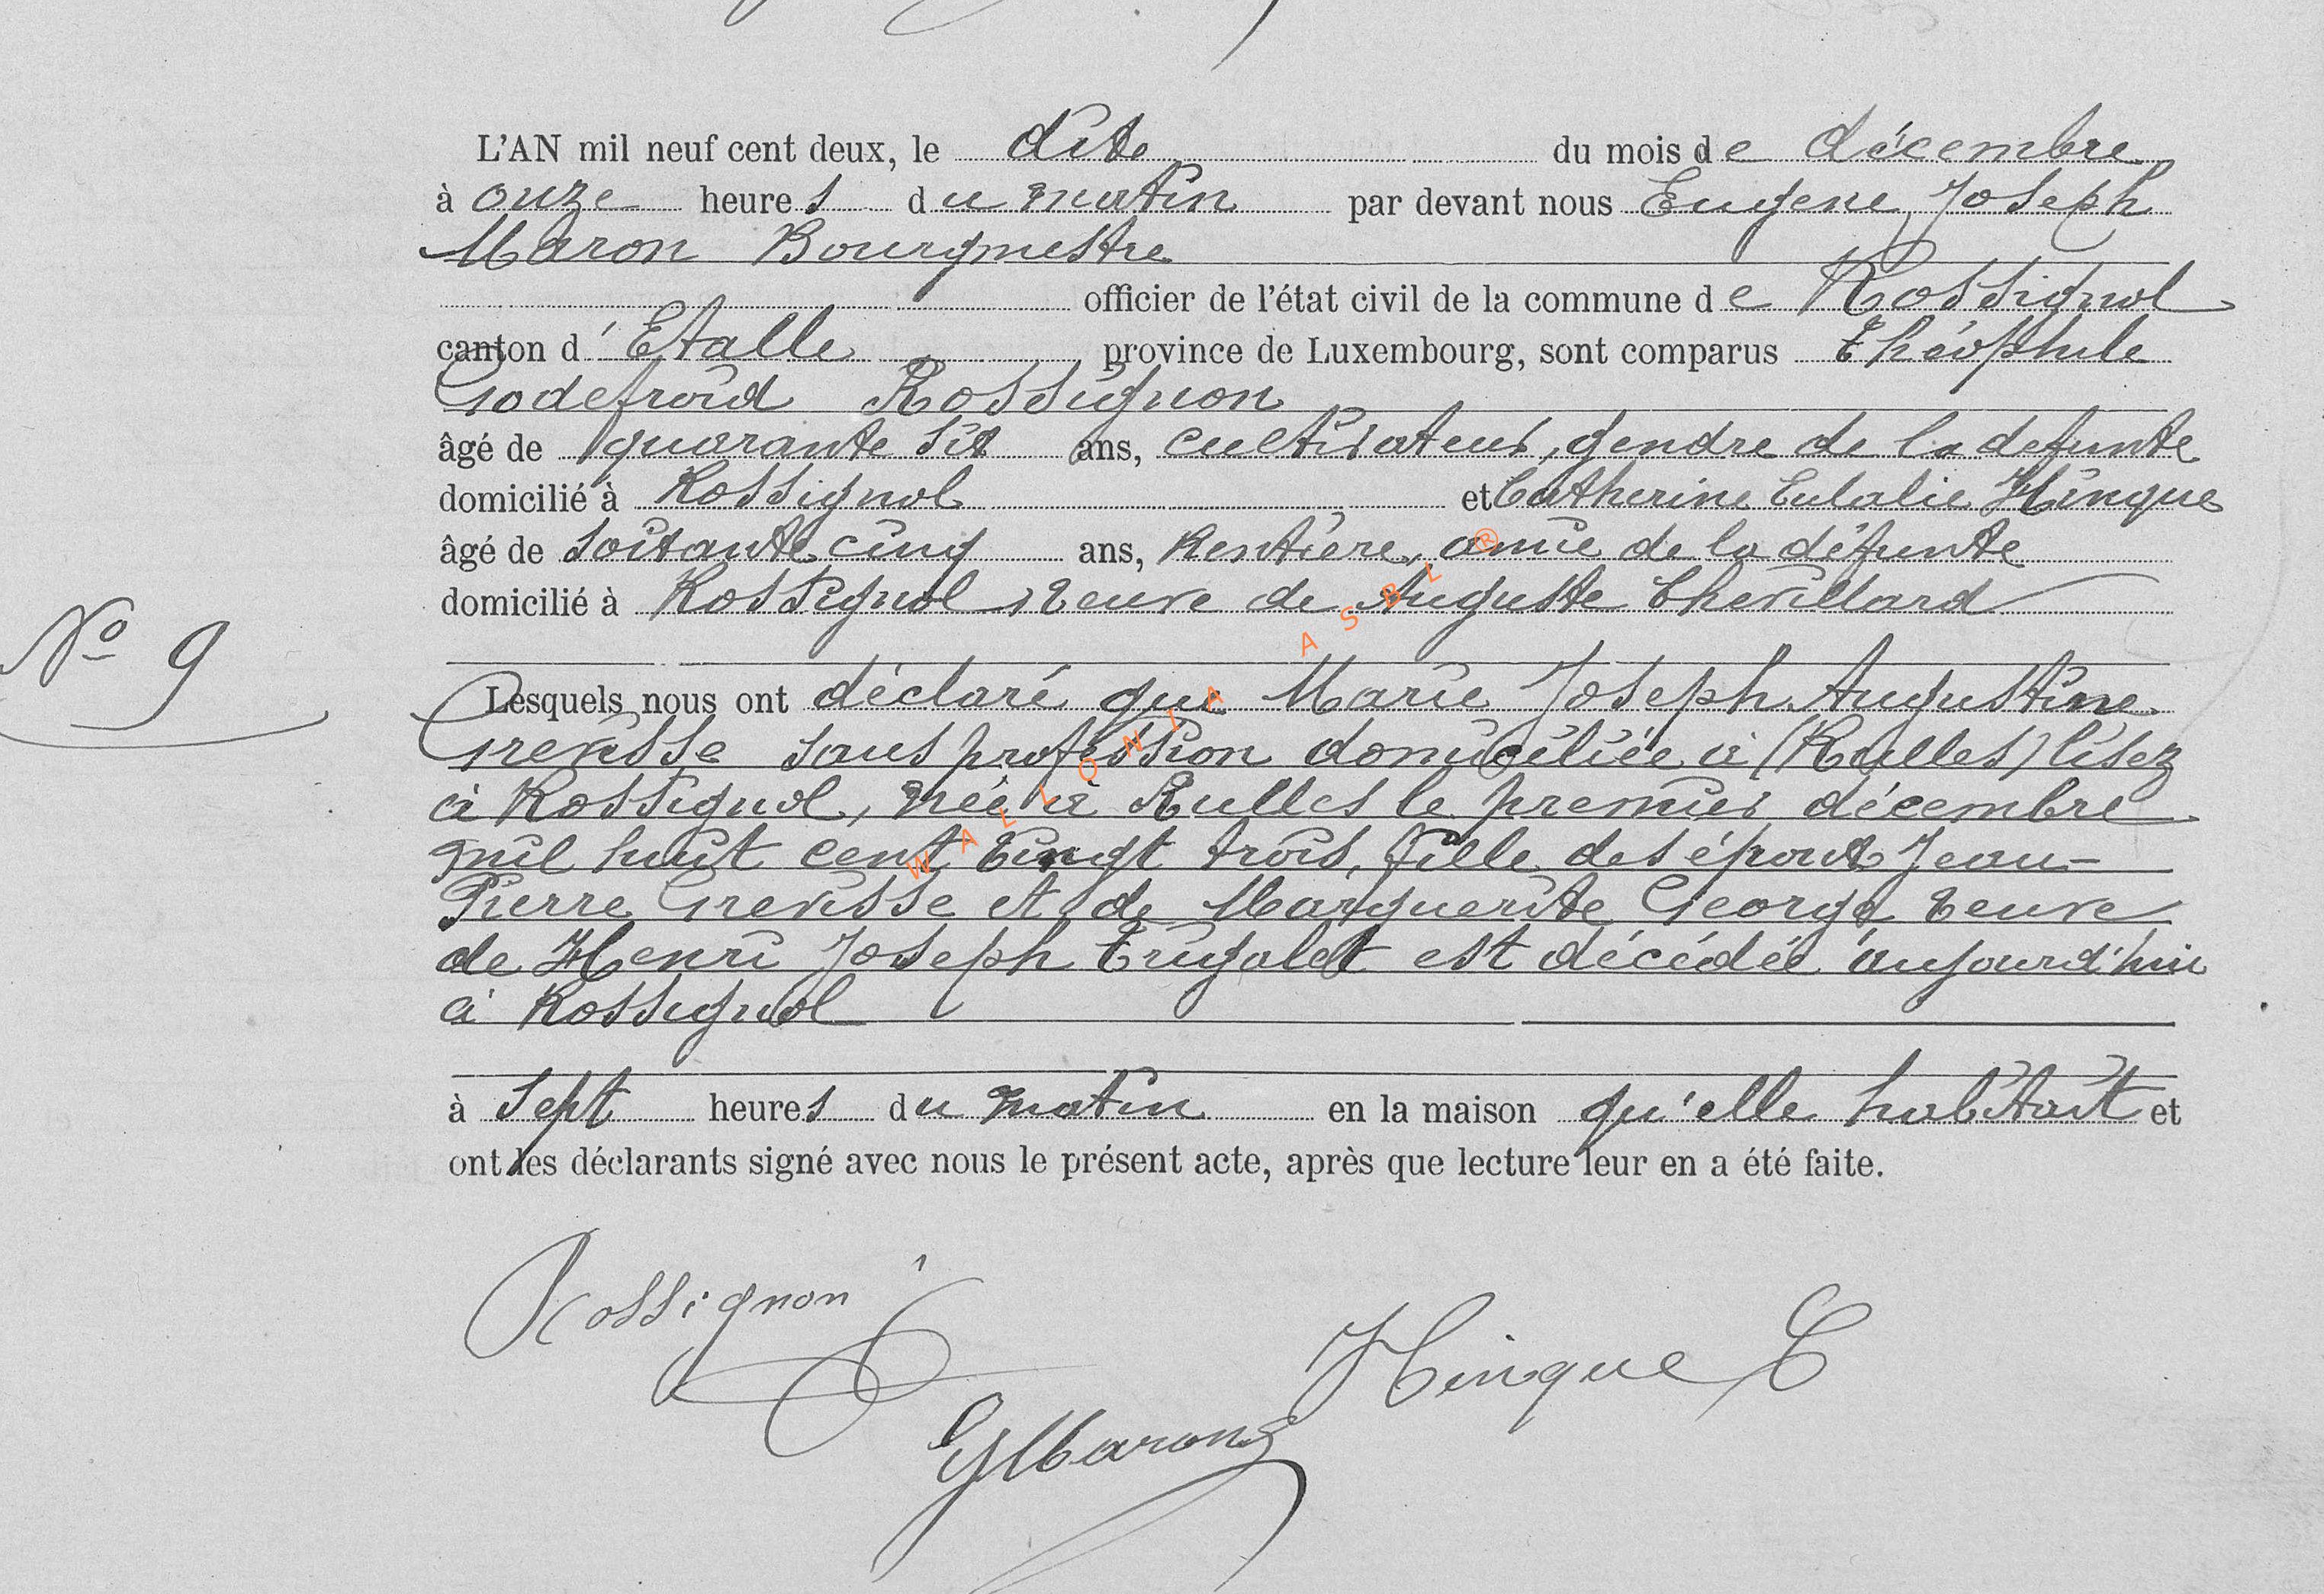 L'AN mil neuf cent deux, le dix du mois de décembre
à onze heures du matin par devant nous Eugene Joseph
Maron Bourgmestre
officier de l'état civil de la commune de Rossignol
canton d'Etalle province de Luxembourg, sont comparus Théophile
Godefroid Rossignon
âgé de quarante six ans, cultivateur, gendre de la defunte
domicilié à Rossignol et Catherine Eulalie Hinque
âgé de soixante cinq ans, Rentière, amie de la défunte
domicilié à Rossignol, veuve de Auguste Thevillard
No 9
Lesquels nous ont déclaré que Marie Joseph Augustine
Grevisse sans profession domiciliée à (Rulles) lisez
à Rossignol, née à Rulles le premier décembre
mil huit cent vingt trois, fille des époux Jean-
Pierre Grevisse et de Marguerite George, veuve
de Henri Joseph Trigalet est décédée aujourd'hui
à Rossignol
à sept heures du matin en la maison qu'elle habitait et
ont les déclarants signé avec nous le présent acte, après que lecture leur en a été faite.
Rossignon
Hinque C
EJMaron
WALLONIA ASBL ®